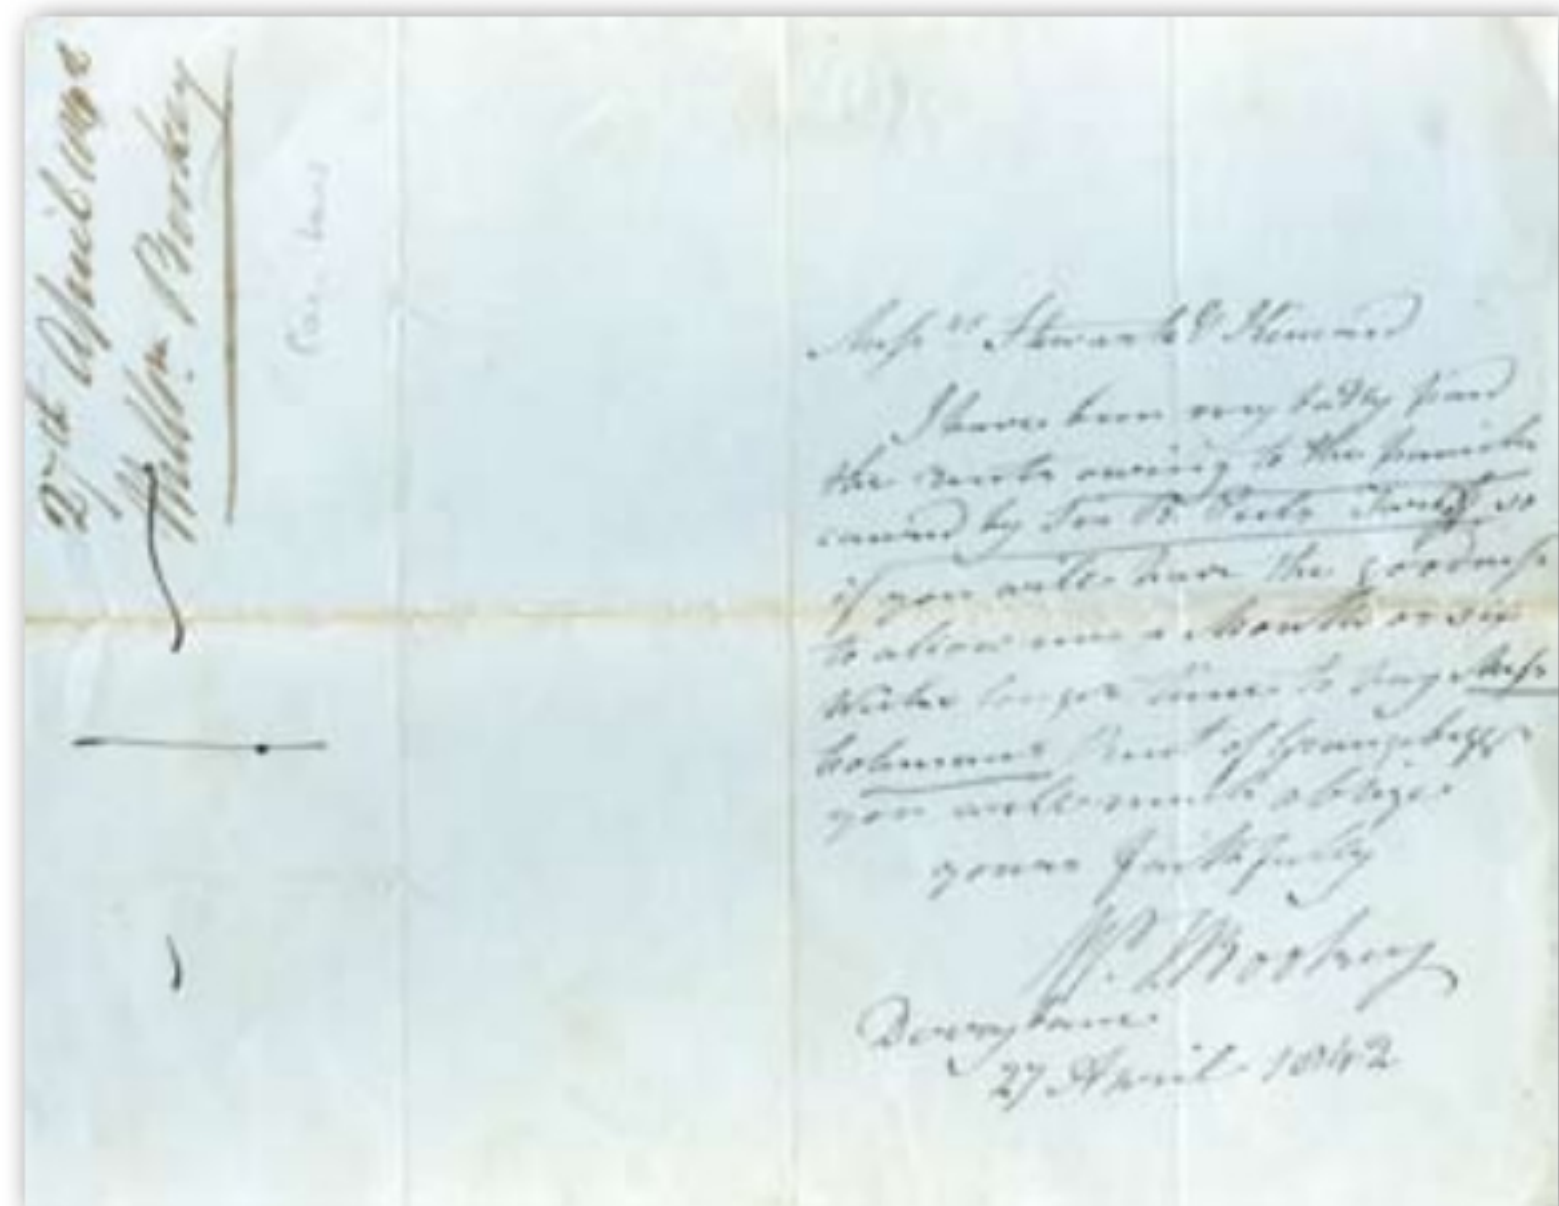 27th April 1842
Willm. Bookey
Messrs. Stewart & Kincaid
I have been very badly paid
the rents owing to the
caused by Sir R. Peels Tariff, so
if you will have the goodness
to allow me a Month or six
Weeks longer time to pay Miss
Colemans Rent of
you will much oblige
yours faithfully
W. T. Bookey
Derrylane
27 April 1842